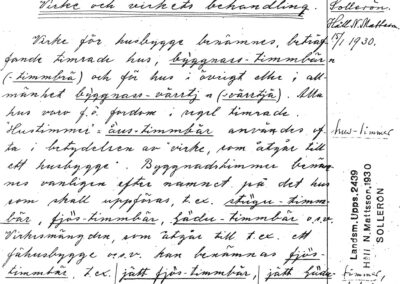 Virke och virkets behandling.
Sollerön.
Häll N. Mattsson
15/1 1930.
Virke för husbygge benämnes, beträf-
fande timrade hus, byggnass-timmbär
(-timmbrä) och för hus i övrigt eller i all-
mänhet byggnass-värrtj a (-värrtjä). Alla
hus voro f.ö. fordom i regel timrade.
Hustimmer = äus-timmbär användes of-
ta i betydelsen av virke, som åtgår till
ett husbygge. Byggnadstimmer benäm-
nes vanligen efter namnet på det hus
som skall uppföras, t.ex. stugu-timm-
bär, fjös-timmbär, lädu-timmbär o.s.v.
Virkesmängden, som åtgår till t.ex. ett
fähusbygge o.s.v. kan benämnas fjös-
timmbär, t.ex. jätt fjös-timmbär, jätt
hus-timmer
timmer,
Landsm. Upps. 2439
N. Mattsson, 1930
SOLLERÖN